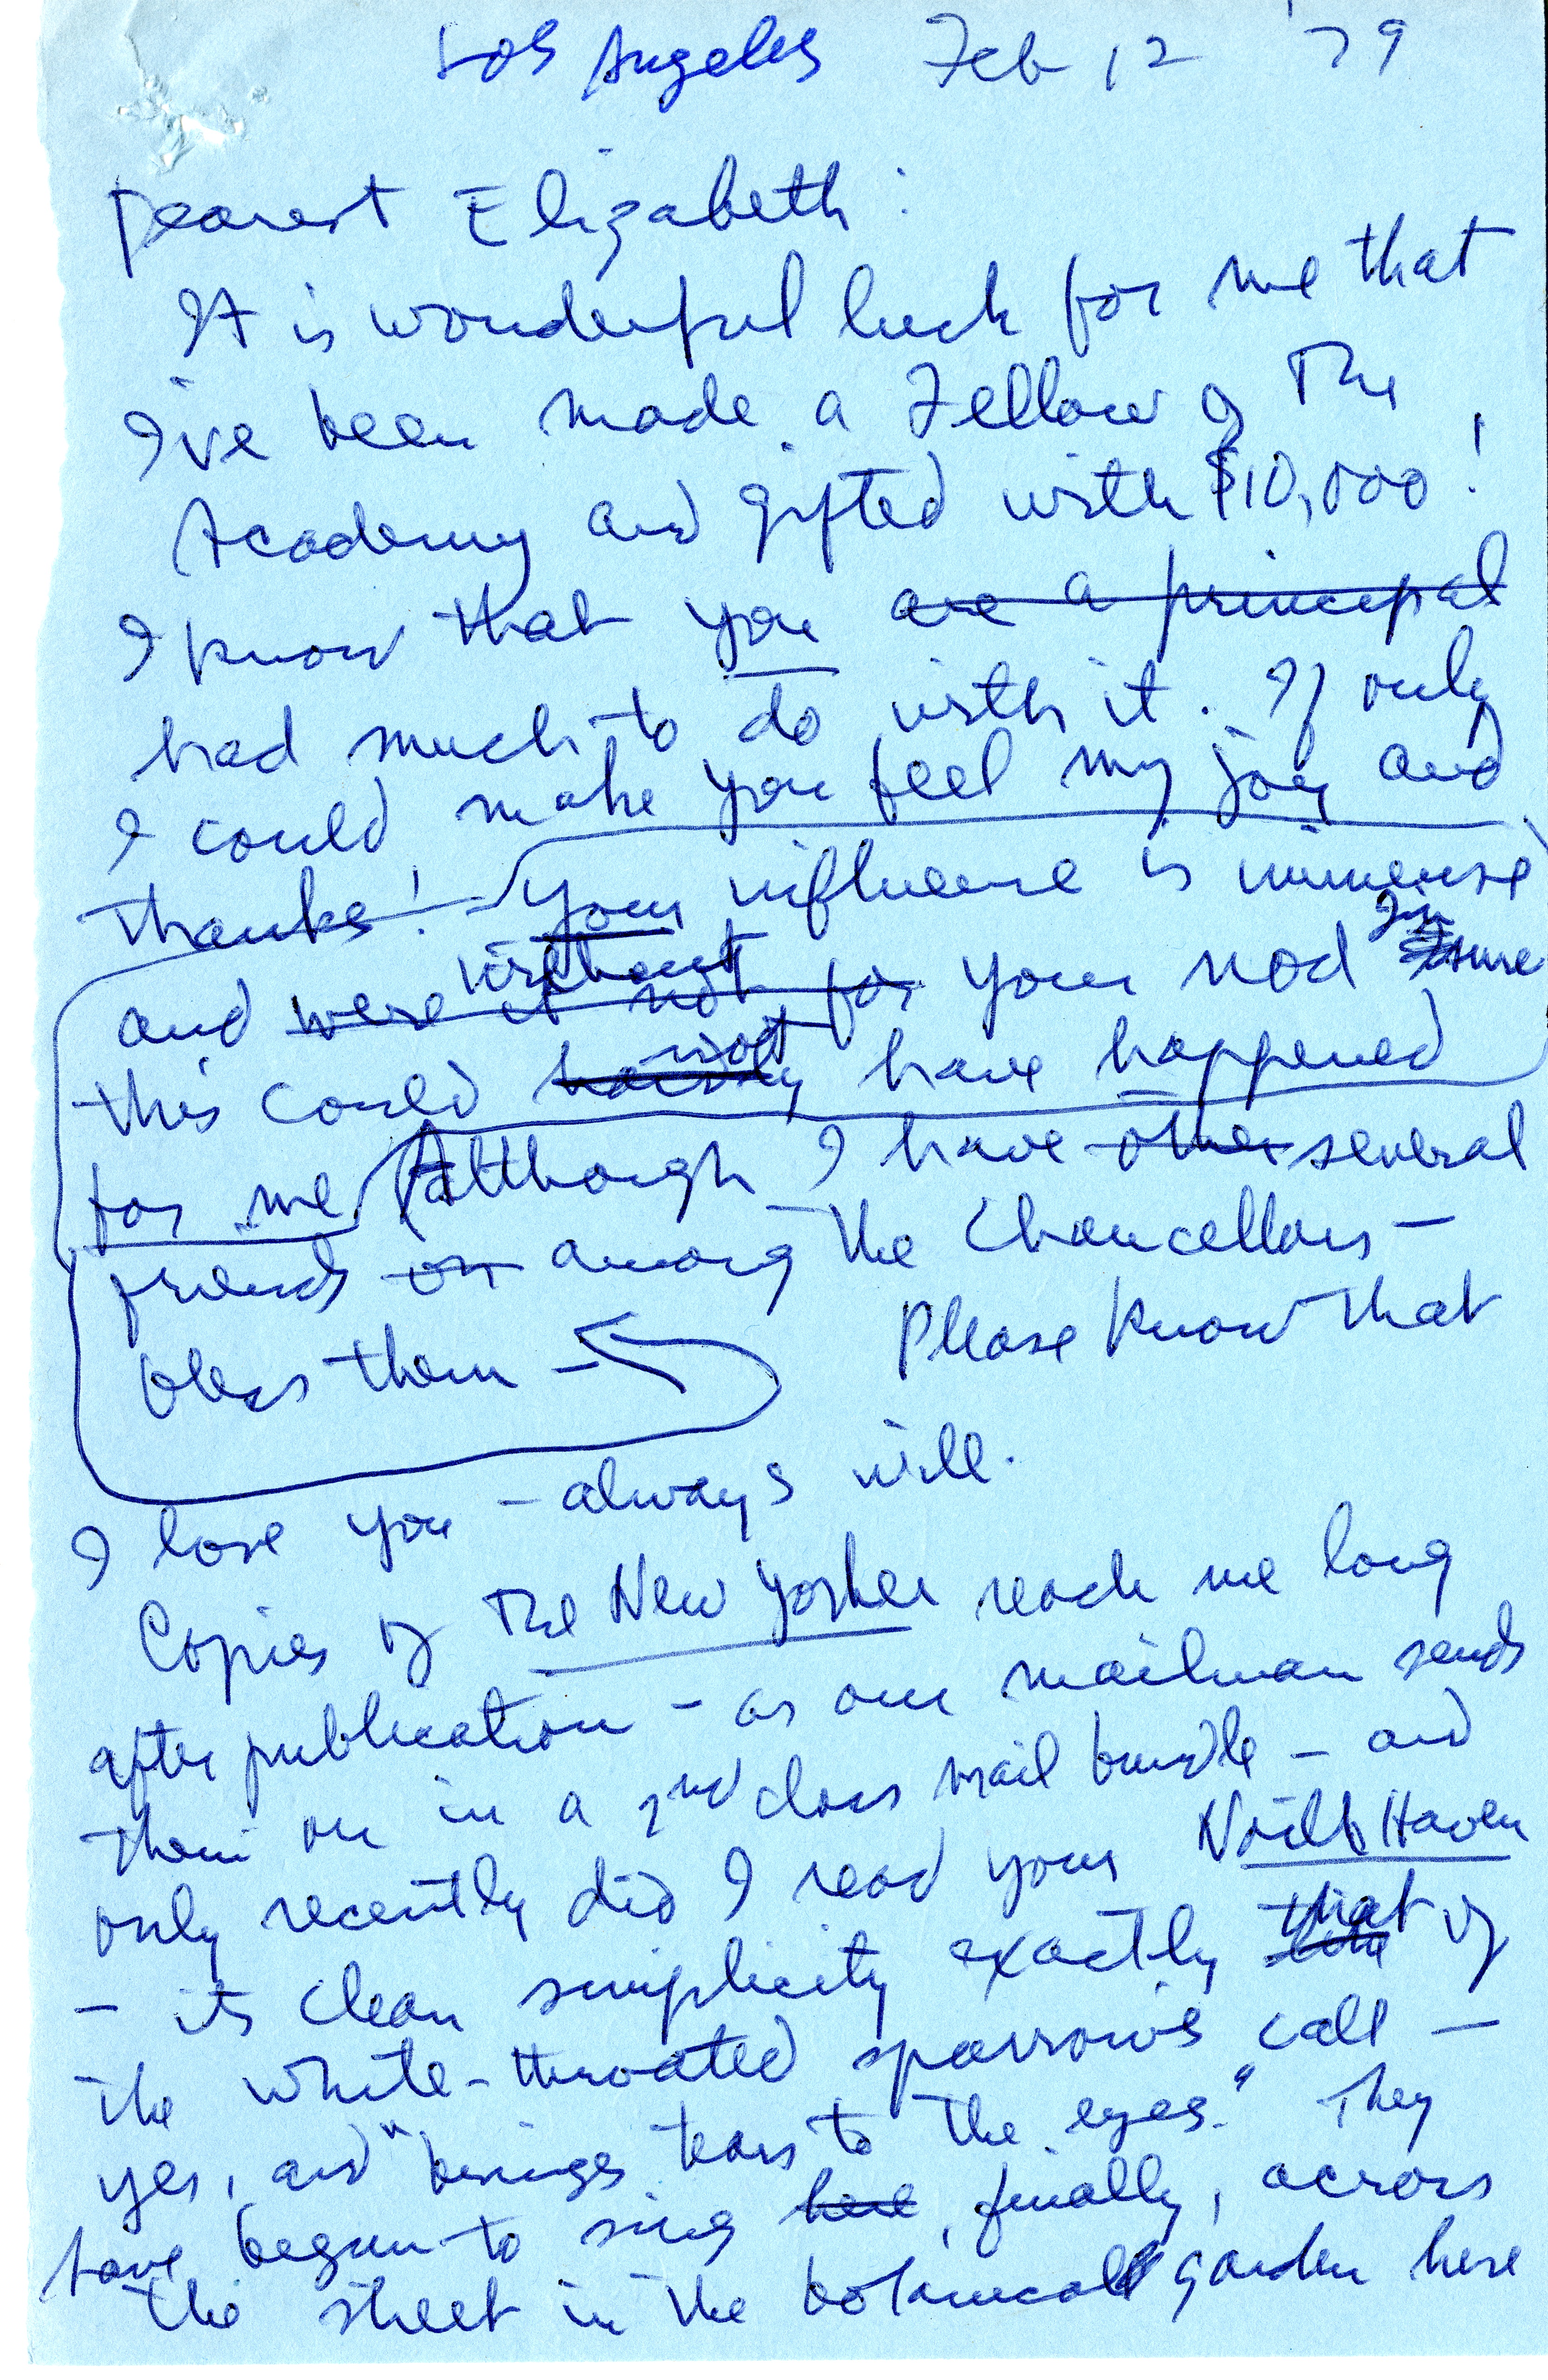 Los Angeles Feb 12 '79
Dearest Elizabeth:
It is wonderful luck for me that
I've been made a Fellow of The
Academy and gifted with $10,000!
I know that you are a principal
had much to do with it. If only
I could make you feel my joy and
thanks! — Your influence is immense
and were it not for without your nod I'm sure
this could hardly not have happened
for me (Although I have other several
friends on among the Chancellors —
bless them — Please know that
I love you — always will.
Copies of The New Yorker reach me long
after publication — as our mailman sends
them on in a 2nd class mail bundle — and
only recently did I read your North Haven
— its clean simplicity exactly like that of
the white-throated sparrow's call —
yes, and "brings tears to the eyes." They
have begun to sing here, finally, across
the street in the botanical garden here